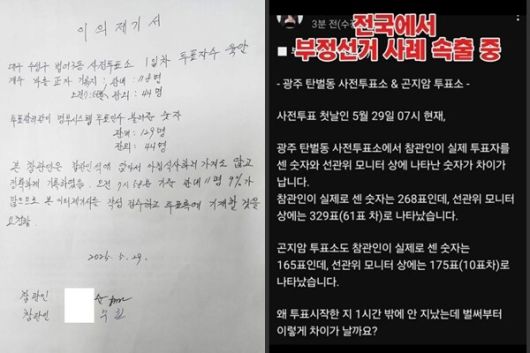 이 의 제 기 서
대구 수성구 범어3동 사전투표소 1일차 투표자수 육안
계수 바를 정자 기록지, 관내: 118명
오전 7:58분, 관외: 44명
투표관리관이 컴퓨터시스템 투표인수 불러준 숫자
관내: 129명
관외: 44명
본 참관인은 참관인석에 앉아서 아침식사하러 가지도 않고
정확하게 기록하였음. 오전 7시 58분 기준 관내 11명 9%가
많으므로 본 이의제기서를 작성 접수하고 투표록에 기재할 것을
요청함.
2025. 5. 29.
참관인
참관인
3분 전(수
전국에서
부정선거 사례 속출 중
- 광주 탄벌동 사전투표소 & 곤지암 투표소 -
사전투표 첫날인 5월 29일 07시 현재,
광주 탄벌동 사전투표소에서 참관인이 실제 투표자를
센 숫자와 선관위 모니터 상에 나타난 숫자가 차이가
납니다.
참관인이 실제로 센 숫자는 268표인데, 선관위 모니터
상에는 329표(61표 차)로 나타났습니다.
곤지암 투표소도 참관인이 실제로 센 숫자는
165표인데, 선관위 모니터 상에는 175표(10표차)로
나타났습니다.
왜 투표시작한 지 1시간 밖에 안 지났는데 벌써부터
이렇게 차이가 날까요?